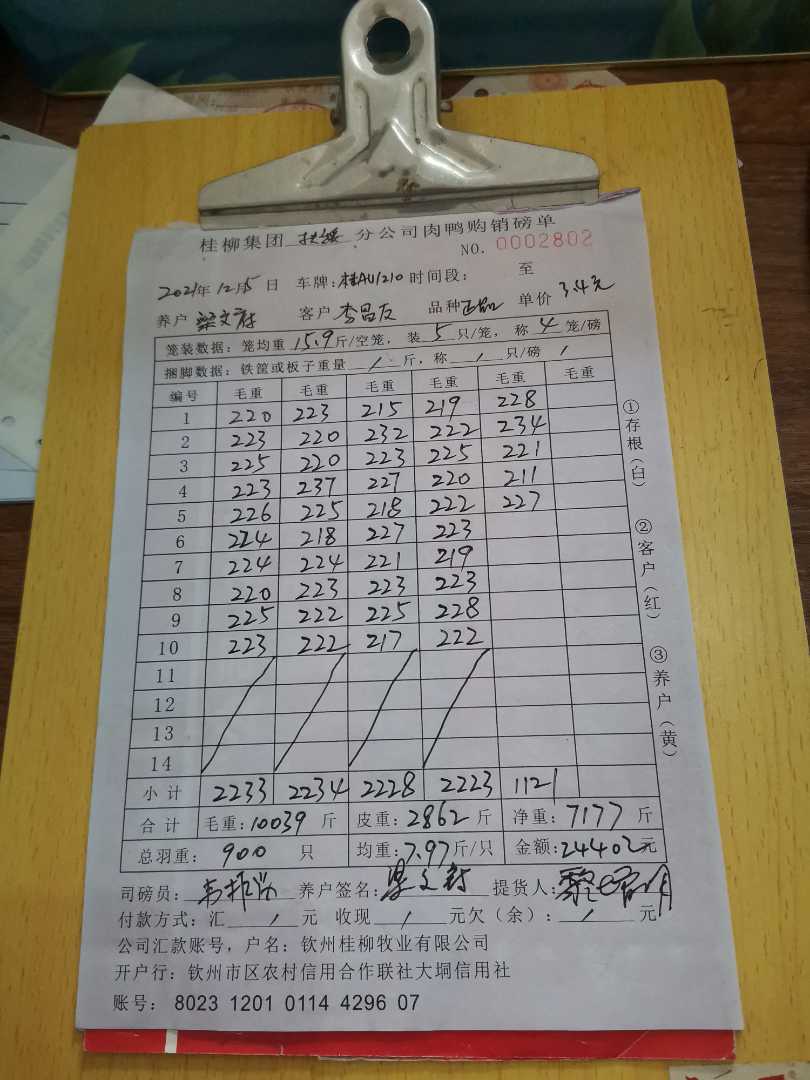 桂柳集团 扶绥 分公司肉鸭购销磅单
NO. 0002802
2021年12月5日 车牌:桂AU1210 时间段: 至
养户 梁文府 客户 李昌友 品种 正品 单价 3.4元
笼装数据: 笼均重 15.9 斤/空笼, 装 5 只/笼, 称 4 笼/磅
捆脚数据: 铁筐或板子重量 / 斤, 称 / 只/磅 /
编号 毛重 毛重 毛重 毛重 毛重 毛重
1 220 223 215 219 228
2 223 220 232 222 234
3 225 220 223 225 221
4 223 237 227 220 211
5 226 225 218 222 227
6 224 218 227 223
7 224 224 221 219
8 220 223 223 223
9 225 222 225 228
10 223 222 217 222
11
12
13
14
小计 2233 2234 2228 2223 1121
合计 毛重:10039 斤 皮重:2862 斤 净重:7177 斤
总羽重: 900 只 均重:7.97斤/只 金额:24402元
司磅员: 养户签名: 提货人:
付款方式: 汇 / 元 收现 / 元欠(余): / 元
公司汇款账号, 户名: 钦州桂柳牧业有限公司
开户行: 钦州市区农村信用合作联社大垌信用社
账号: 8023 1201 0114 4296 07
①存根(白)
②客户(红)
③养户(黄)